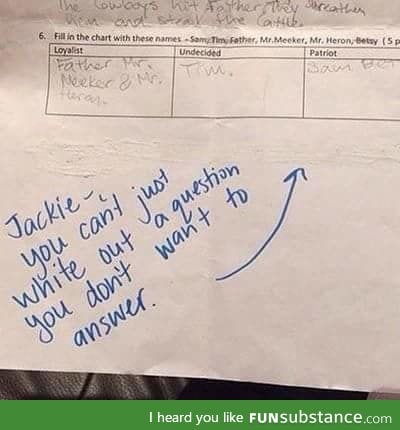 The Cowboys hit Father. They threathen
them and steal the Cattle.
6. Fill in the chart with these names - Sam, Tim, Father, Mr.Meeker, Mr. Heron, Betsy (5 p
Loyalist Undecided Patriot
Father Mr. Tim. Sam Bet
Meeker & Mr.
Heron.
Jackie-
you can't just
white out a question
you don't want to
answer.
I heard you like FUNsubstance.com